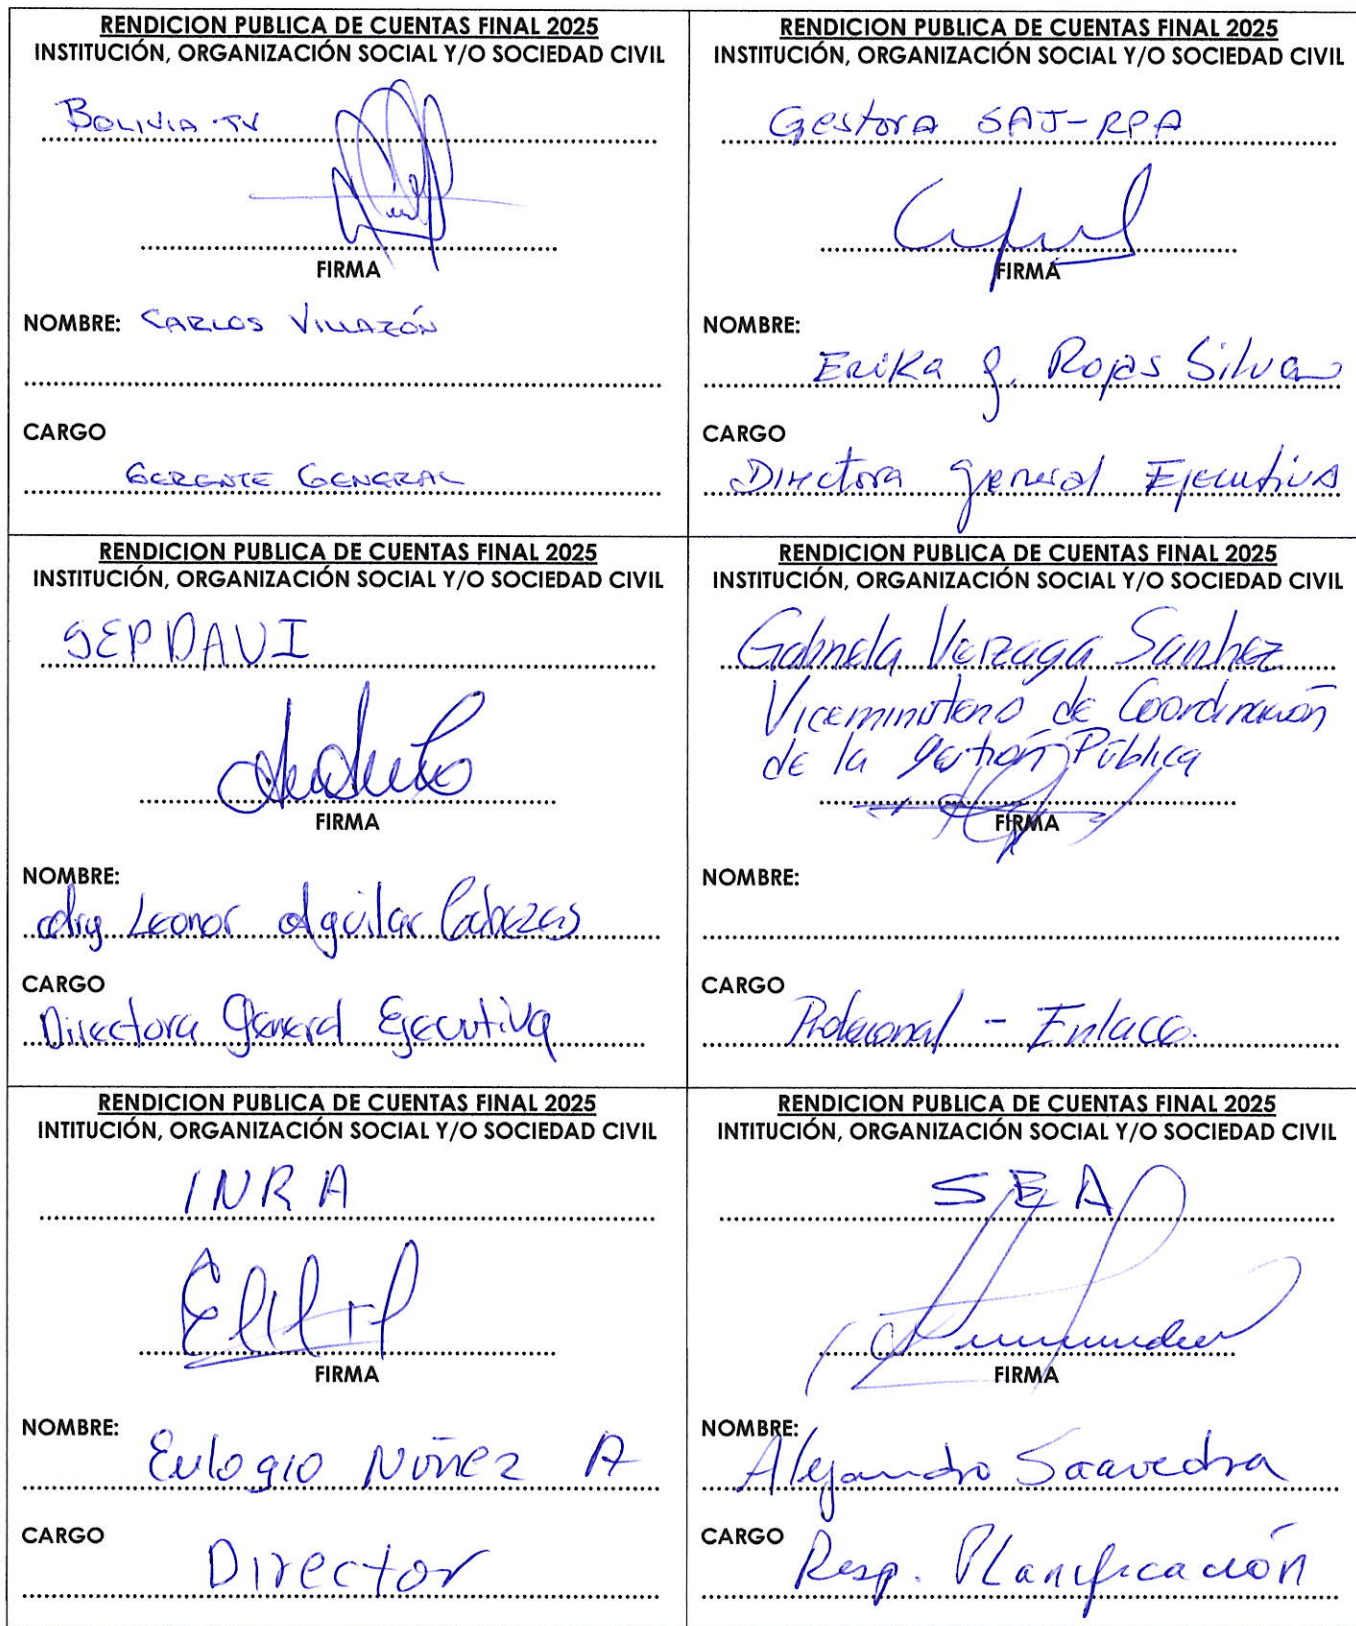 RENDICION PUBLICA DE CUENTAS FINAL 2025
INSTITUCIÓN, ORGANIZACIÓN SOCIAL Y/O SOCIEDAD CIVIL
BOLIVIA TV
FIRMA
NOMBRE: CARLOS VILLAZÓN
CARGO
GERENTE GENERAL
RENDICION PUBLICA DE CUENTAS FINAL 2025
INSTITUCIÓN, ORGANIZACIÓN SOCIAL Y/O SOCIEDAD CIVIL
Gestora SAJ-RPA
FIRMA
NOMBRE:
Erika J. Rojas Silva
CARGO
Directora general Ejecutiva
RENDICION PUBLICA DE CUENTAS FINAL 2025
INSTITUCIÓN, ORGANIZACIÓN SOCIAL Y/O SOCIEDAD CIVIL
SEPDAVI
FIRMA
NOMBRE:
Leonor Aguilar Cabezas
CARGO
Directora General Ejecutiva
RENDICION PUBLICA DE CUENTAS FINAL 2025
INSTITUCIÓN, ORGANIZACIÓN SOCIAL Y/O SOCIEDAD CIVIL
Gabriela Verzaga Sanhez
Viceministerio de Coordinación
de la Gestión Pública
FIRMA
NOMBRE:
CARGO
Profesional - Enlace.
RENDICION PUBLICA DE CUENTAS FINAL 2025
INTITUCIÓN, ORGANIZACIÓN SOCIAL Y/O SOCIEDAD CIVIL
INRA
FIRMA
NOMBRE:
Eulogio Núñez A
CARGO
Director
RENDICION PUBLICA DE CUENTAS FINAL 2025
INTITUCIÓN, ORGANIZACIÓN SOCIAL Y/O SOCIEDAD CIVIL
SEA
FIRMA
NOMBRE:
Alejandro Saavedra
CARGO
Resp. Planificación